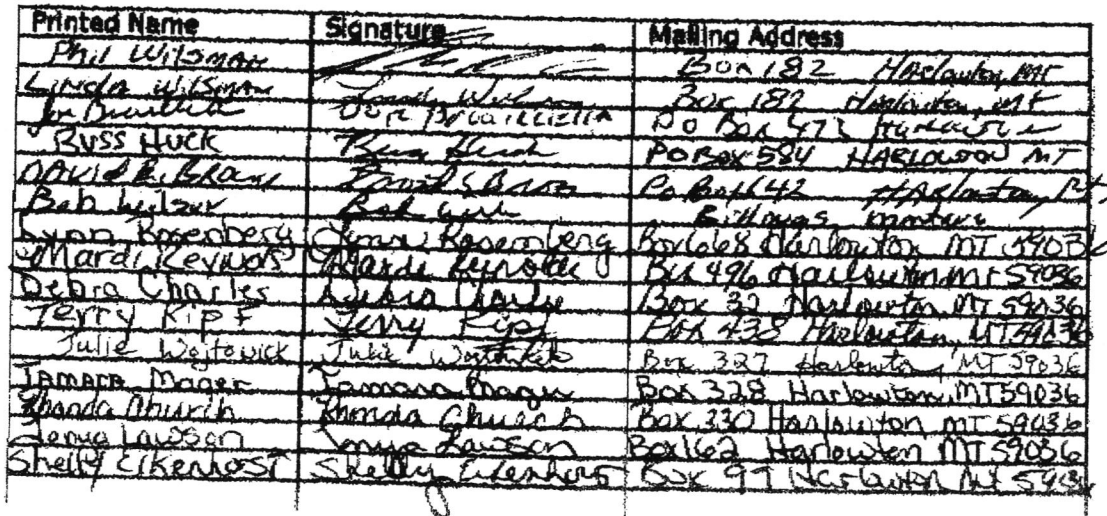 Printed Name Signature Mailing Address
Phil Wilsman Box 182 Harlowton, MT
Linda Wilsman Box 182 Harlowton, MT
Joe PO Box 472 Harlowton
RUSS HUCK Russ Huck PO BOX 584 HARLOWTON MT
DAVID Po Box 642 Harlowton,
Bob Bob Billings montana
Lynn Rosenberg Lynn Rosenberg Box 668 Harlowton MT 59036
Mardi Reynolds Mardi Reynolds Box 496 Harlowton MT 59036
Debra Charles Debra Charles Box 32 Harlowton, MT 59036
Terry Kipf Terry Kipf Box 438 Harlowton, MT 59036
Julie Wojtowick Julie Wojtowick Box 327 Harlowton, MT 59036
TAMARA Mager Tamara Mager Box 328 Harlowton, MT 59036
Rhonda Church Rhonda Church Box 330 Harlowton MT 59036
Tonya Lawson Tonya Lawson Box 162 Harlowton MT 59036
Shelly Shelly Box 97 Harlowton, Mt 59036